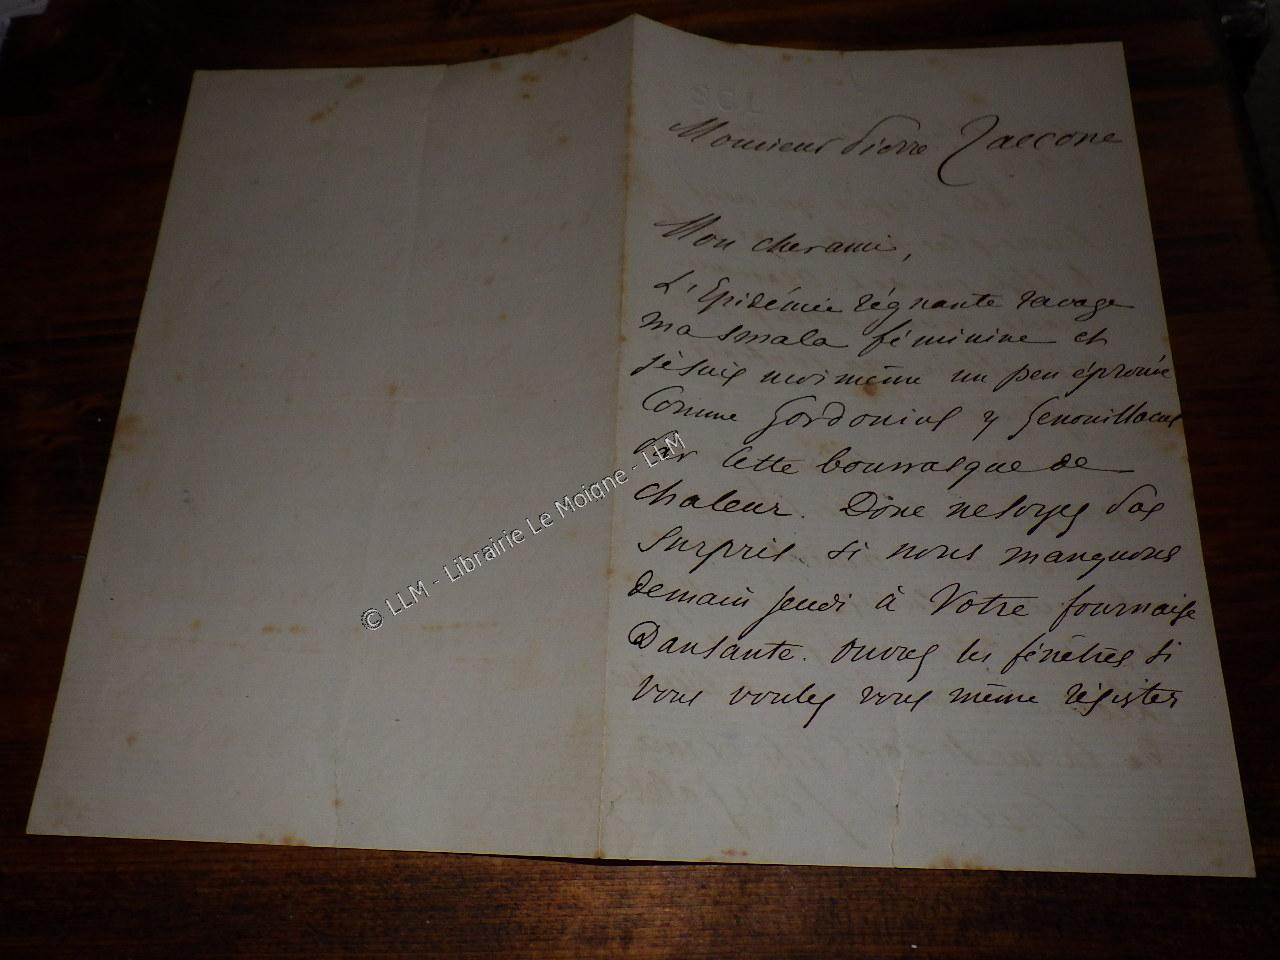 Monsieur Pierre Zaccone
Mon cher ami,
L'Epidémie régnante ravage
ma smala féminine et
je suis moi même un peu éprouvé
Comme Gordonius y Genouillacus
par cette bourrasque de
chaleur. Donc ne soyez pas
surpris si nous manquons
demain jeudi à Votre fournaise
Dansante. Ouvrez les fenêtres si
vous voulez vous même résister
© LLM - Librairie Le Moigne - LLM